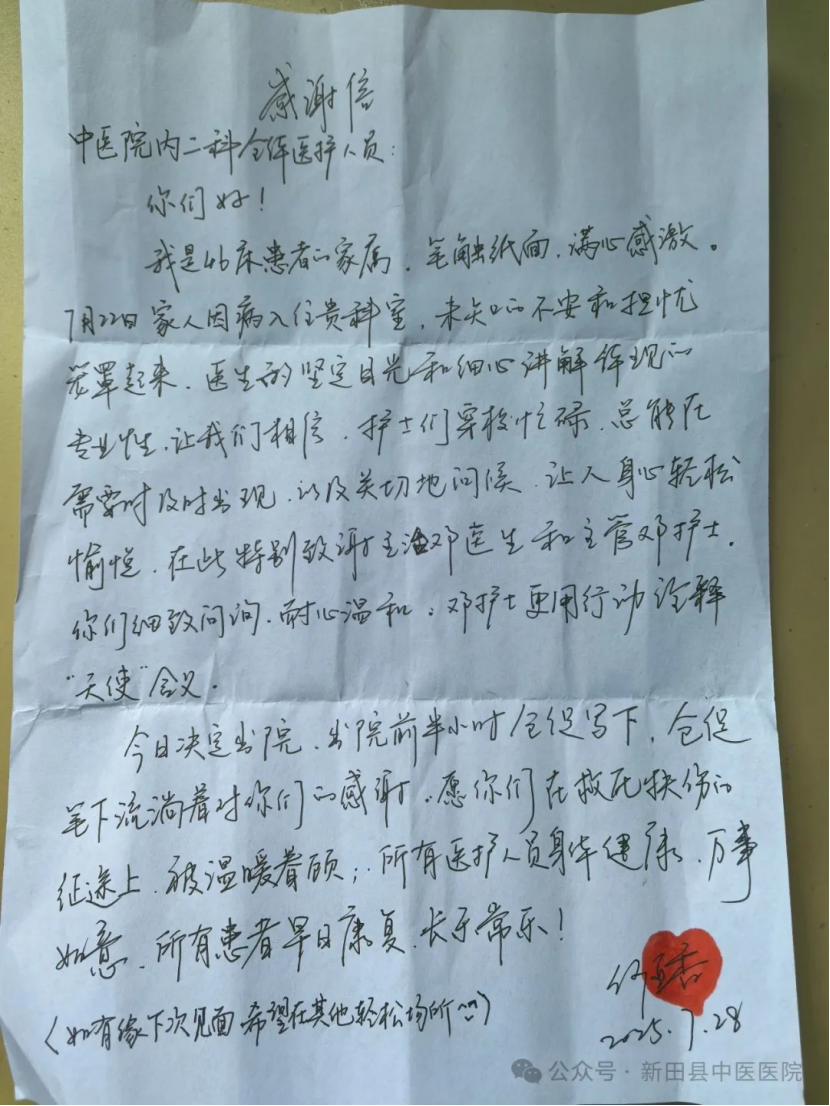 感谢信
中医院内二科全体医护人员:
你们好!
我是46床患者的家属,笔触纸面,满心感激。
7月22日家人因病入住贵科室,未知的不安和担忧
笼罩起来,医生的坚定目光和细心讲解体现的
专业性,让我们相信,护士们穿梭忙碌,总能在
需要时及时出现,以及关切地问候,让人身心轻松
愉悦,在此特别致谢主治邓医生和主管邓护士,
你们细致问询,耐心温和。邓护士更用行动诠释
“天使”含义。
今日决定出院,出院前半小时仓促写下,仓促
笔下流淌着对你们的感谢。愿你们在救死扶伤的
征途上,被温暖眷顾;所有医护人员身体健康,万事
如意,所有患者早日康复,长乐常乐!
(如有缘下次见面希望在其他轻松场所^^)
2025.7.28
公众号·新田县中医医院